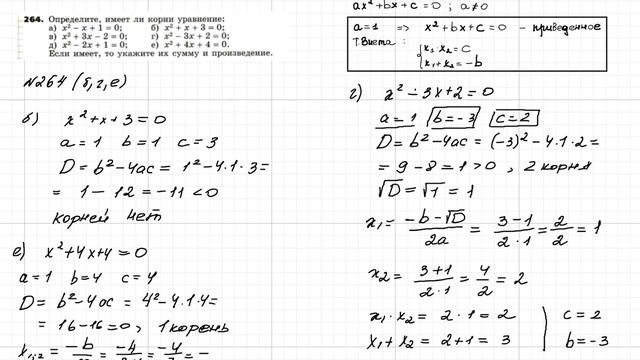 264. Определите, имеет ли корни уравнение:
а) x² − x + 1 = 0; б) x² + x + 3 = 0;
в) x² + 3x − 2 = 0; г) x² − 3x + 2 = 0;
д) x² − 2x + 1 = 0; е) x² + 4x + 4 = 0.
Если имеет, то укажите их сумму и произведение.
ax² + bx + c = 0 ; a ≠ 0
a = 1 => x² + bx + c = 0 – приведенное
т. Виета : { x₁·x₂ = c
x₁ + x₂ = −b
N264 (б, г, е)
б) x² + x + 3 = 0
a = 1 b = 1 c = 3
D = b² − 4ac = 1² − 4·1·3 =
= 1 − 12 = −11 < 0
корней нет
е) x² + 4x + 4 = 0
a = 1 b = 4 c = 4
D = b² − 4ac = 4² − 4·1·4 =
= 16 − 16 = 0, 1 корень
x₁;₂ = −b = −4 = −4 = −
г) x² − 3x + 2 = 0
a = 1 b = −3 c = 2
D = b² − 4ac = (−3)² − 4·1·2 =
= 9 − 8 = 1 > 0, 2 корня
√D = √1 = 1
x₁ = (−b − √D)/2a = (3 − 1)/(2·1) = 2/2 = 1
x₂ = (3 + 1)/(2·1) = 4/2 = 2
x₁·x₂ = 2·1 = 2 | c = 2
x₁ + x₂ = 2 + 1 = 3 | b = −3